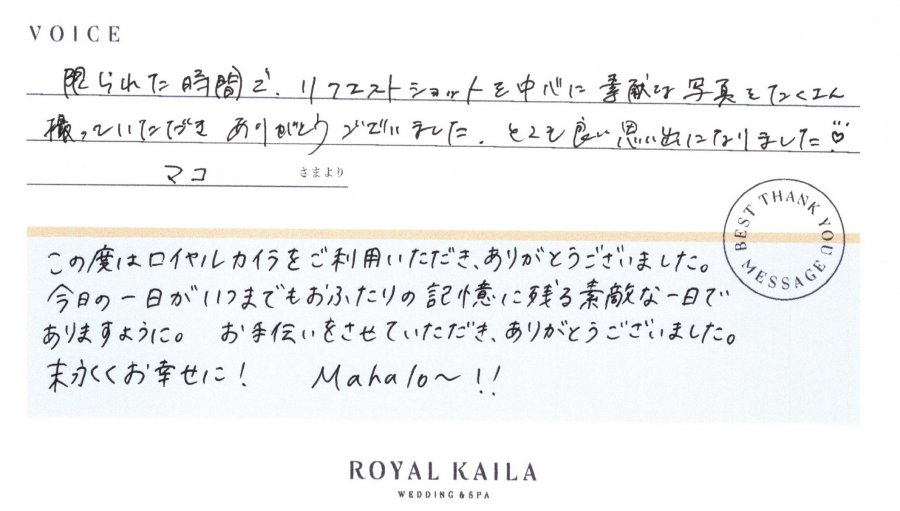 VOICE
限られた時間で、リクエストショットを中心に素敵な写真をたくさん
撮っていただき ありがとうございました。とても良い思い出になりました♡
マコ さまより
BEST THANK YOU MESSAGE
この度はロイヤルカイラをご利用いただき、ありがとうございました。
今日の一日がいつまでもおふたりの記憶に残る素敵な一日で
ありますように。 お手伝いをさせていただき、ありがとうございました。
末永くお幸せに! Mahalo〜!!
ROYAL KAILA
WEDDING & SPA